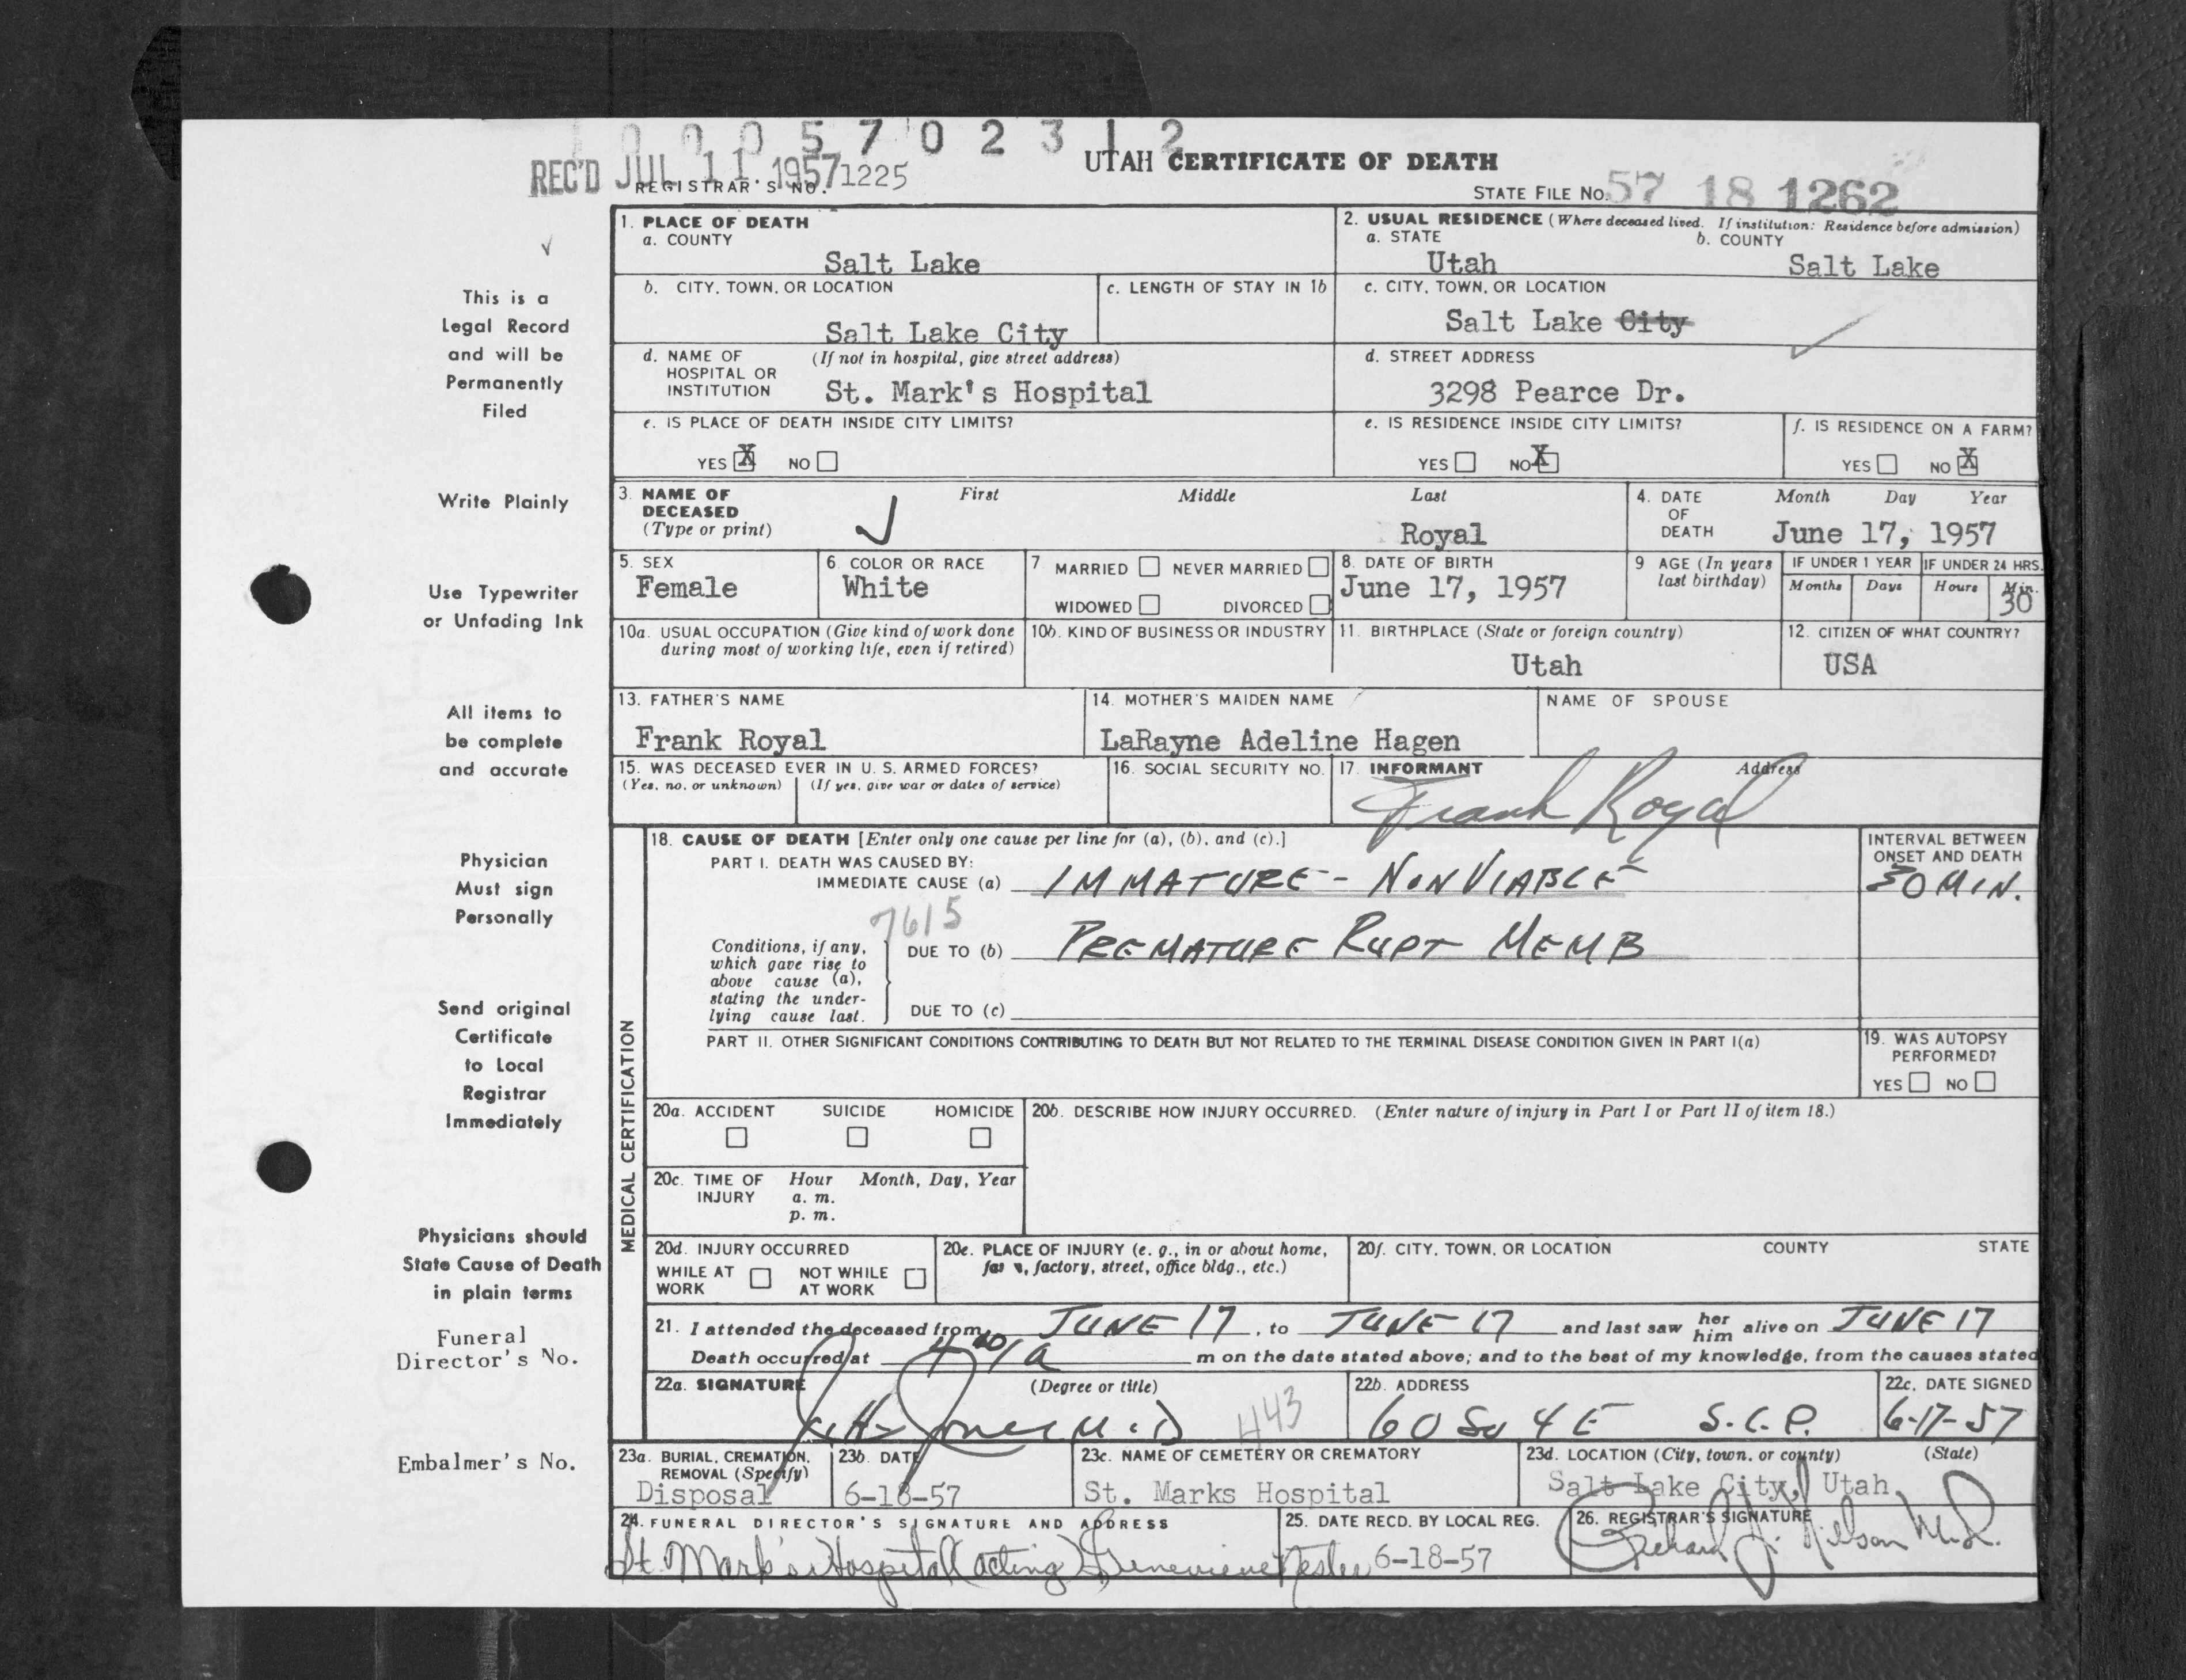 0 0 0 5 7 0 2 3 1 2
REC'D JUL 11 1957
REGISTRAR'S NO. 1225
UTAH CERTIFICATE OF DEATH
STATE FILE NO. 57 18 1262
This is a
Legal Record
and will be
Permanently
Filed
Write Plainly
Use Typewriter
or Unfading Ink
All items to
be complete
and accurate
Physician
Must sign
Personally
Send original
Certificate
to Local
Registrar
Immediately
Physicians should
State Cause of Death
in plain terms
Funeral
Director's No.
Embalmer's No.
1. PLACE OF DEATH
a. COUNTY
Salt Lake
2. USUAL RESIDENCE (Where deceased lived. If institution: Residence before admission)
a. STATE
b. COUNTY
Utah
Salt Lake
b. CITY, TOWN, OR LOCATION
Salt Lake City
c. LENGTH OF STAY IN 1b
c. CITY, TOWN, OR LOCATION
Salt Lake City
d. NAME OF HOSPITAL OR INSTITUTION
(If not in hospital, give street address)
St. Mark's Hospital
d. STREET ADDRESS
3298 Pearce Dr.
e. IS PLACE OF DEATH INSIDE CITY LIMITS?
YES X NO
e. IS RESIDENCE INSIDE CITY LIMITS?
YES NO X
f. IS RESIDENCE ON A FARM?
YES NO X
3. NAME OF DECEASED
(Type or print)
First Middle Last
Royal
4. DATE OF DEATH
Month Day Year
June 17, 1957
5. SEX
Female
6. COLOR OR RACE
White
7 MARRIED NEVER MARRIED
WIDOWED DIVORCED
8. DATE OF BIRTH
June 17, 1957
9 AGE (In years last birthday)
IF UNDER 1 YEAR
Months Days
IF UNDER 24 HRS.
Hours Min.
30
10a. USUAL OCCUPATION (Give kind of work done during most of working life, even if retired)
10b. KIND OF BUSINESS OR INDUSTRY
11. BIRTHPLACE (State or foreign country)
Utah
12. CITIZEN OF WHAT COUNTRY?
USA
13. FATHER'S NAME
Frank Royal
14. MOTHER'S MAIDEN NAME
LaRayne Adeline Hagen
NAME OF SPOUSE
15. WAS DECEASED EVER IN U. S. ARMED FORCES?
(Yes, no, or unknown) (If yes, give war or dates of service)
16. SOCIAL SECURITY NO.
17. INFORMANT Address
Frank Royal
MEDICAL CERTIFICATION
18. CAUSE OF DEATH [Enter only one cause per line for (a), (b), and (c).]
PART I. DEATH WAS CAUSED BY:
IMMEDIATE CAUSE (a) IMMATURE - NONVIABLE
INTERVAL BETWEEN ONSET AND DEATH
30 MIN.
7615
Conditions, if any, which gave rise to above cause (a), stating the underlying cause last.
DUE TO (b) PREMATURE RUPT MEMB
DUE TO (c)
PART II. OTHER SIGNIFICANT CONDITIONS CONTRIBUTING TO DEATH BUT NOT RELATED TO THE TERMINAL DISEASE CONDITION GIVEN IN PART I(a)
19. WAS AUTOPSY PERFORMED?
YES NO
20a. ACCIDENT SUICIDE HOMICIDE
20b. DESCRIBE HOW INJURY OCCURRED. (Enter nature of injury in Part I or Part II of item 18.)
20c. TIME OF INJURY
Hour Month, Day, Year
a. m.
p. m.
20d. INJURY OCCURRED
WHILE AT WORK NOT WHILE AT WORK
20e. PLACE OF INJURY (e. g., in or about home, farm, factory, street, office bldg., etc.)
20f. CITY, TOWN, OR LOCATION COUNTY STATE
21. I attended the deceased from JUNE 17, to JUNE 17 and last saw her him alive on JUNE 17
Death occurred at a m on the date stated above; and to the best of my knowledge, from the causes stated
22a. SIGNATURE (Degree or title)
Jones M.D
443
22b. ADDRESS
60 So 4 E
22c. DATE SIGNED
6-17-57
23a. BURIAL, CREMATION, REMOVAL (Specify)
Disposal
23b. DATE
6-18-57
23c. NAME OF CEMETERY OR CREMATORY
St. Marks Hospital
23d. LOCATION (City, town, or county) (State)
Salt Lake City, Utah
24. FUNERAL DIRECTOR'S SIGNATURE AND ADDRESS
St. Mark's Hospital (acting) Genevieve
25. DATE RECD. BY LOCAL REG.
6-18-57
26. REGISTRAR'S SIGNATURE
Richard J. Nilson M.D.